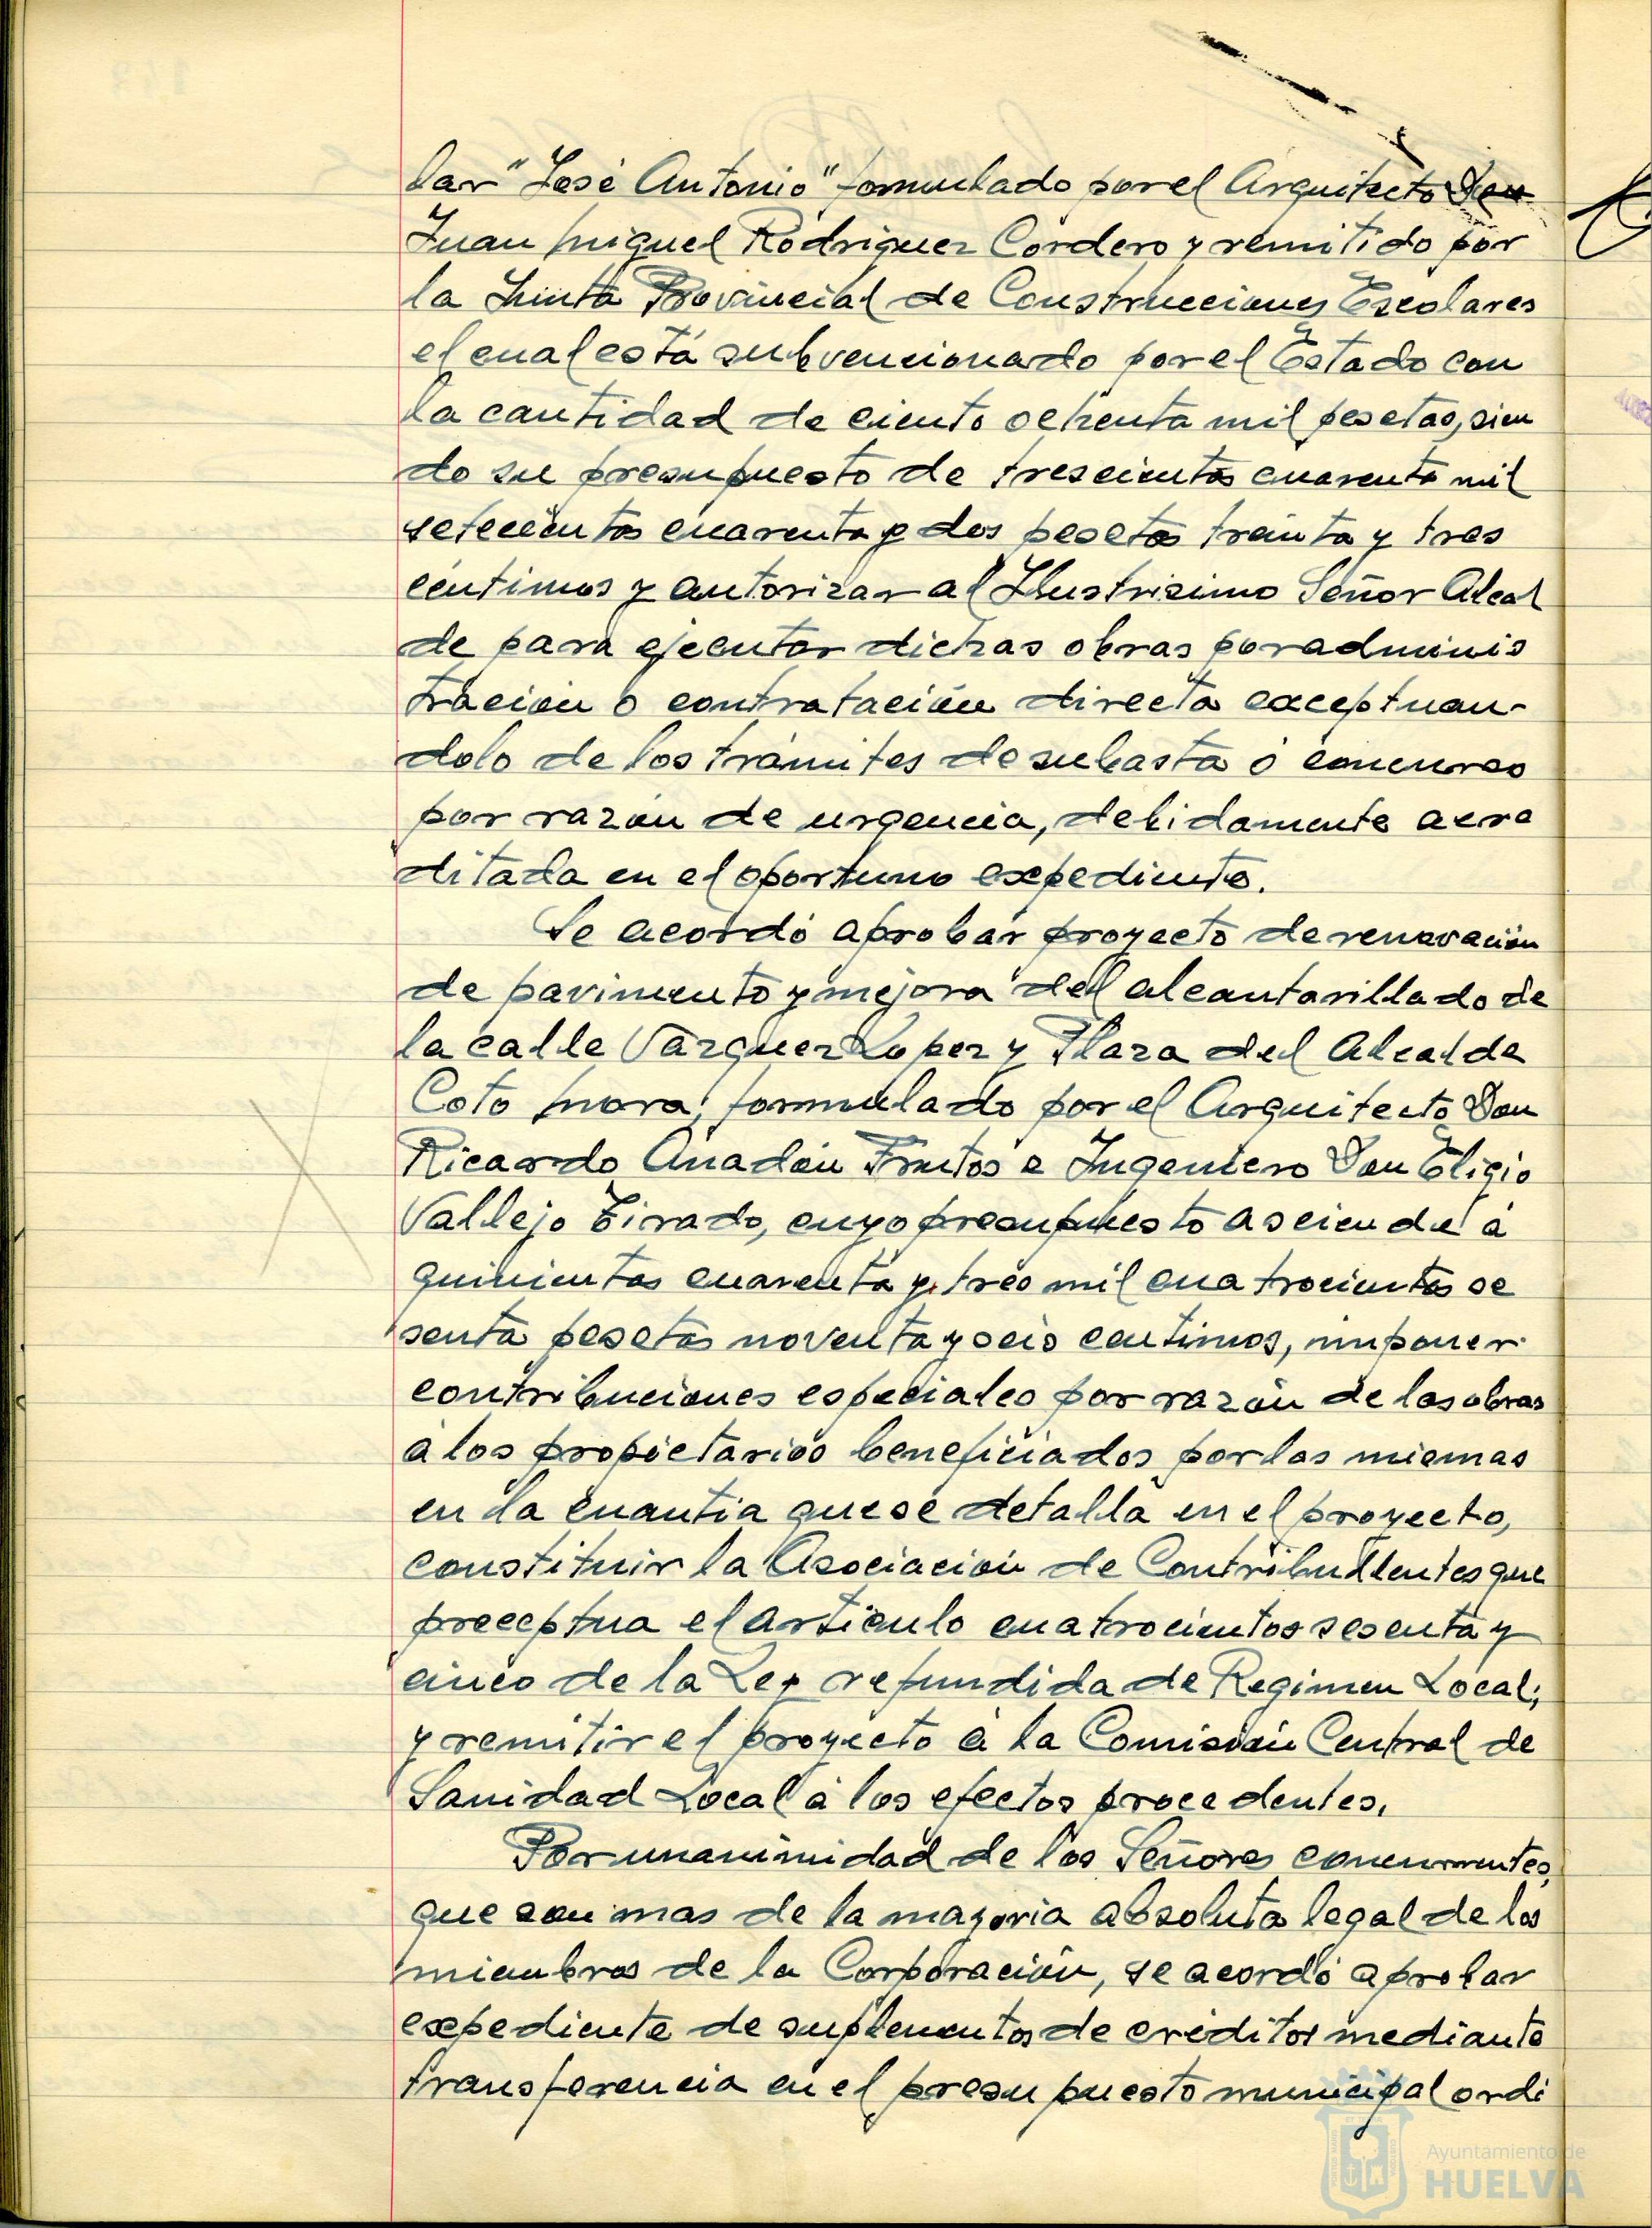 lar "José Antonio" formulado por el Arquitecto Don
Juan Miguel Rodriguez Cordero y remitido por
la Junta Provincial de Construcciones Escolares
el cual está subvencionado por el Estado con
la cantidad de ciento ochenta mil pesetas, sien
do su presupuesto de trescientas cuarenta mil
setecientas cuarenta y dos pesetas treinta y tres
céntimos y autorizar al Ilustrisimo Señor Alcal
de para ejecutar dichas obras por adminis
tración o contratación directa exceptuan-
dolo de los trámites de subasta ó concurso
por razón de urgencia, debidamente acre
ditada en el oportuno expediente.
Se acordó aprobar proyecto de renovación
de pavimento y mejora del alcantarillado de
la calle Vazquez Lopez y Plaza del Alcalde
Coto Mora, formulado por el Arquitecto Don
Ricardo Anadón Frutos e Ingeniero Don Eligio
Vallejo Tirado, cuyo presupuesto asciende á
quinientas cuarenta y tres mil cuatrocientas se
senta pesetas noventa y seis centimos, imponer
contribuciones especiales por razón de las obras
á los propietarios beneficiados por las mismas
en la cuantia que se detalla en el proyecto,
constituir la Asociación de Contribullentes que
preceptua el articulo cuatrocientos sesenta y
cinco de la Ley refundida de Regimen Local;
y remitir el proyecto á la Comisión Central de
Sanidad Local á los efectos procedentes.
Por unanimidad de los Señores concurrentes,
que son mas de la mayoria absoluta legal de los
miembros de la Corporación, se acordó aprobar
expediente de suplementos de créditos mediante
transferencia en el presupuesto municipal ordi
Ayuntamiento de
HUELVA